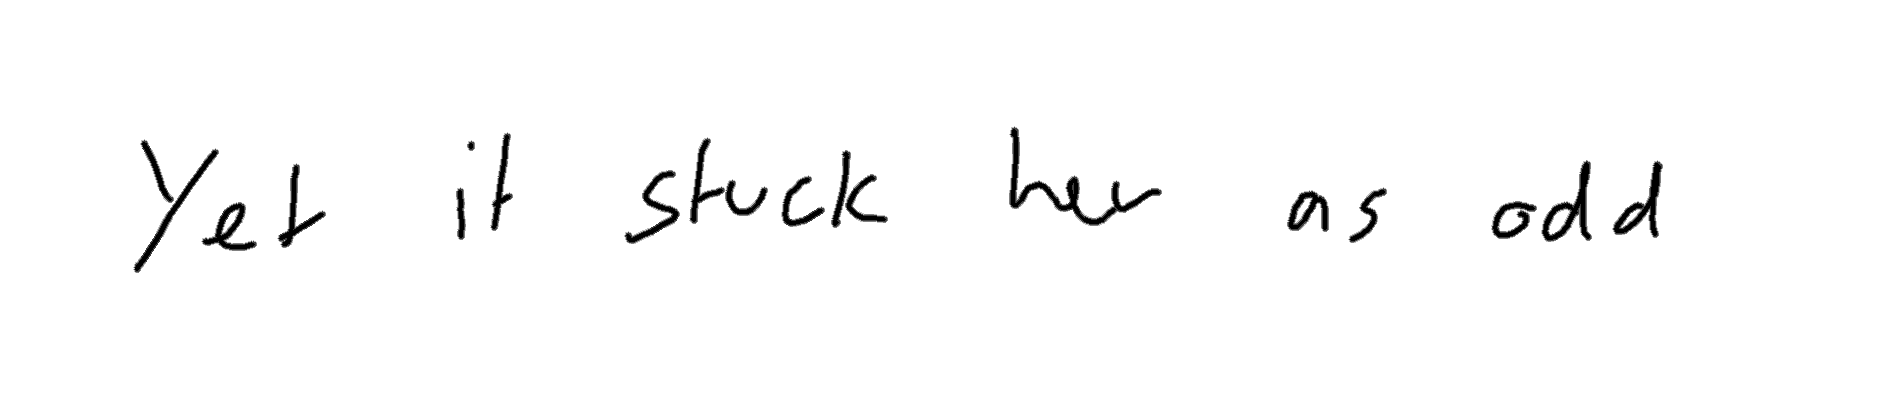 Yet it stuck her as odd